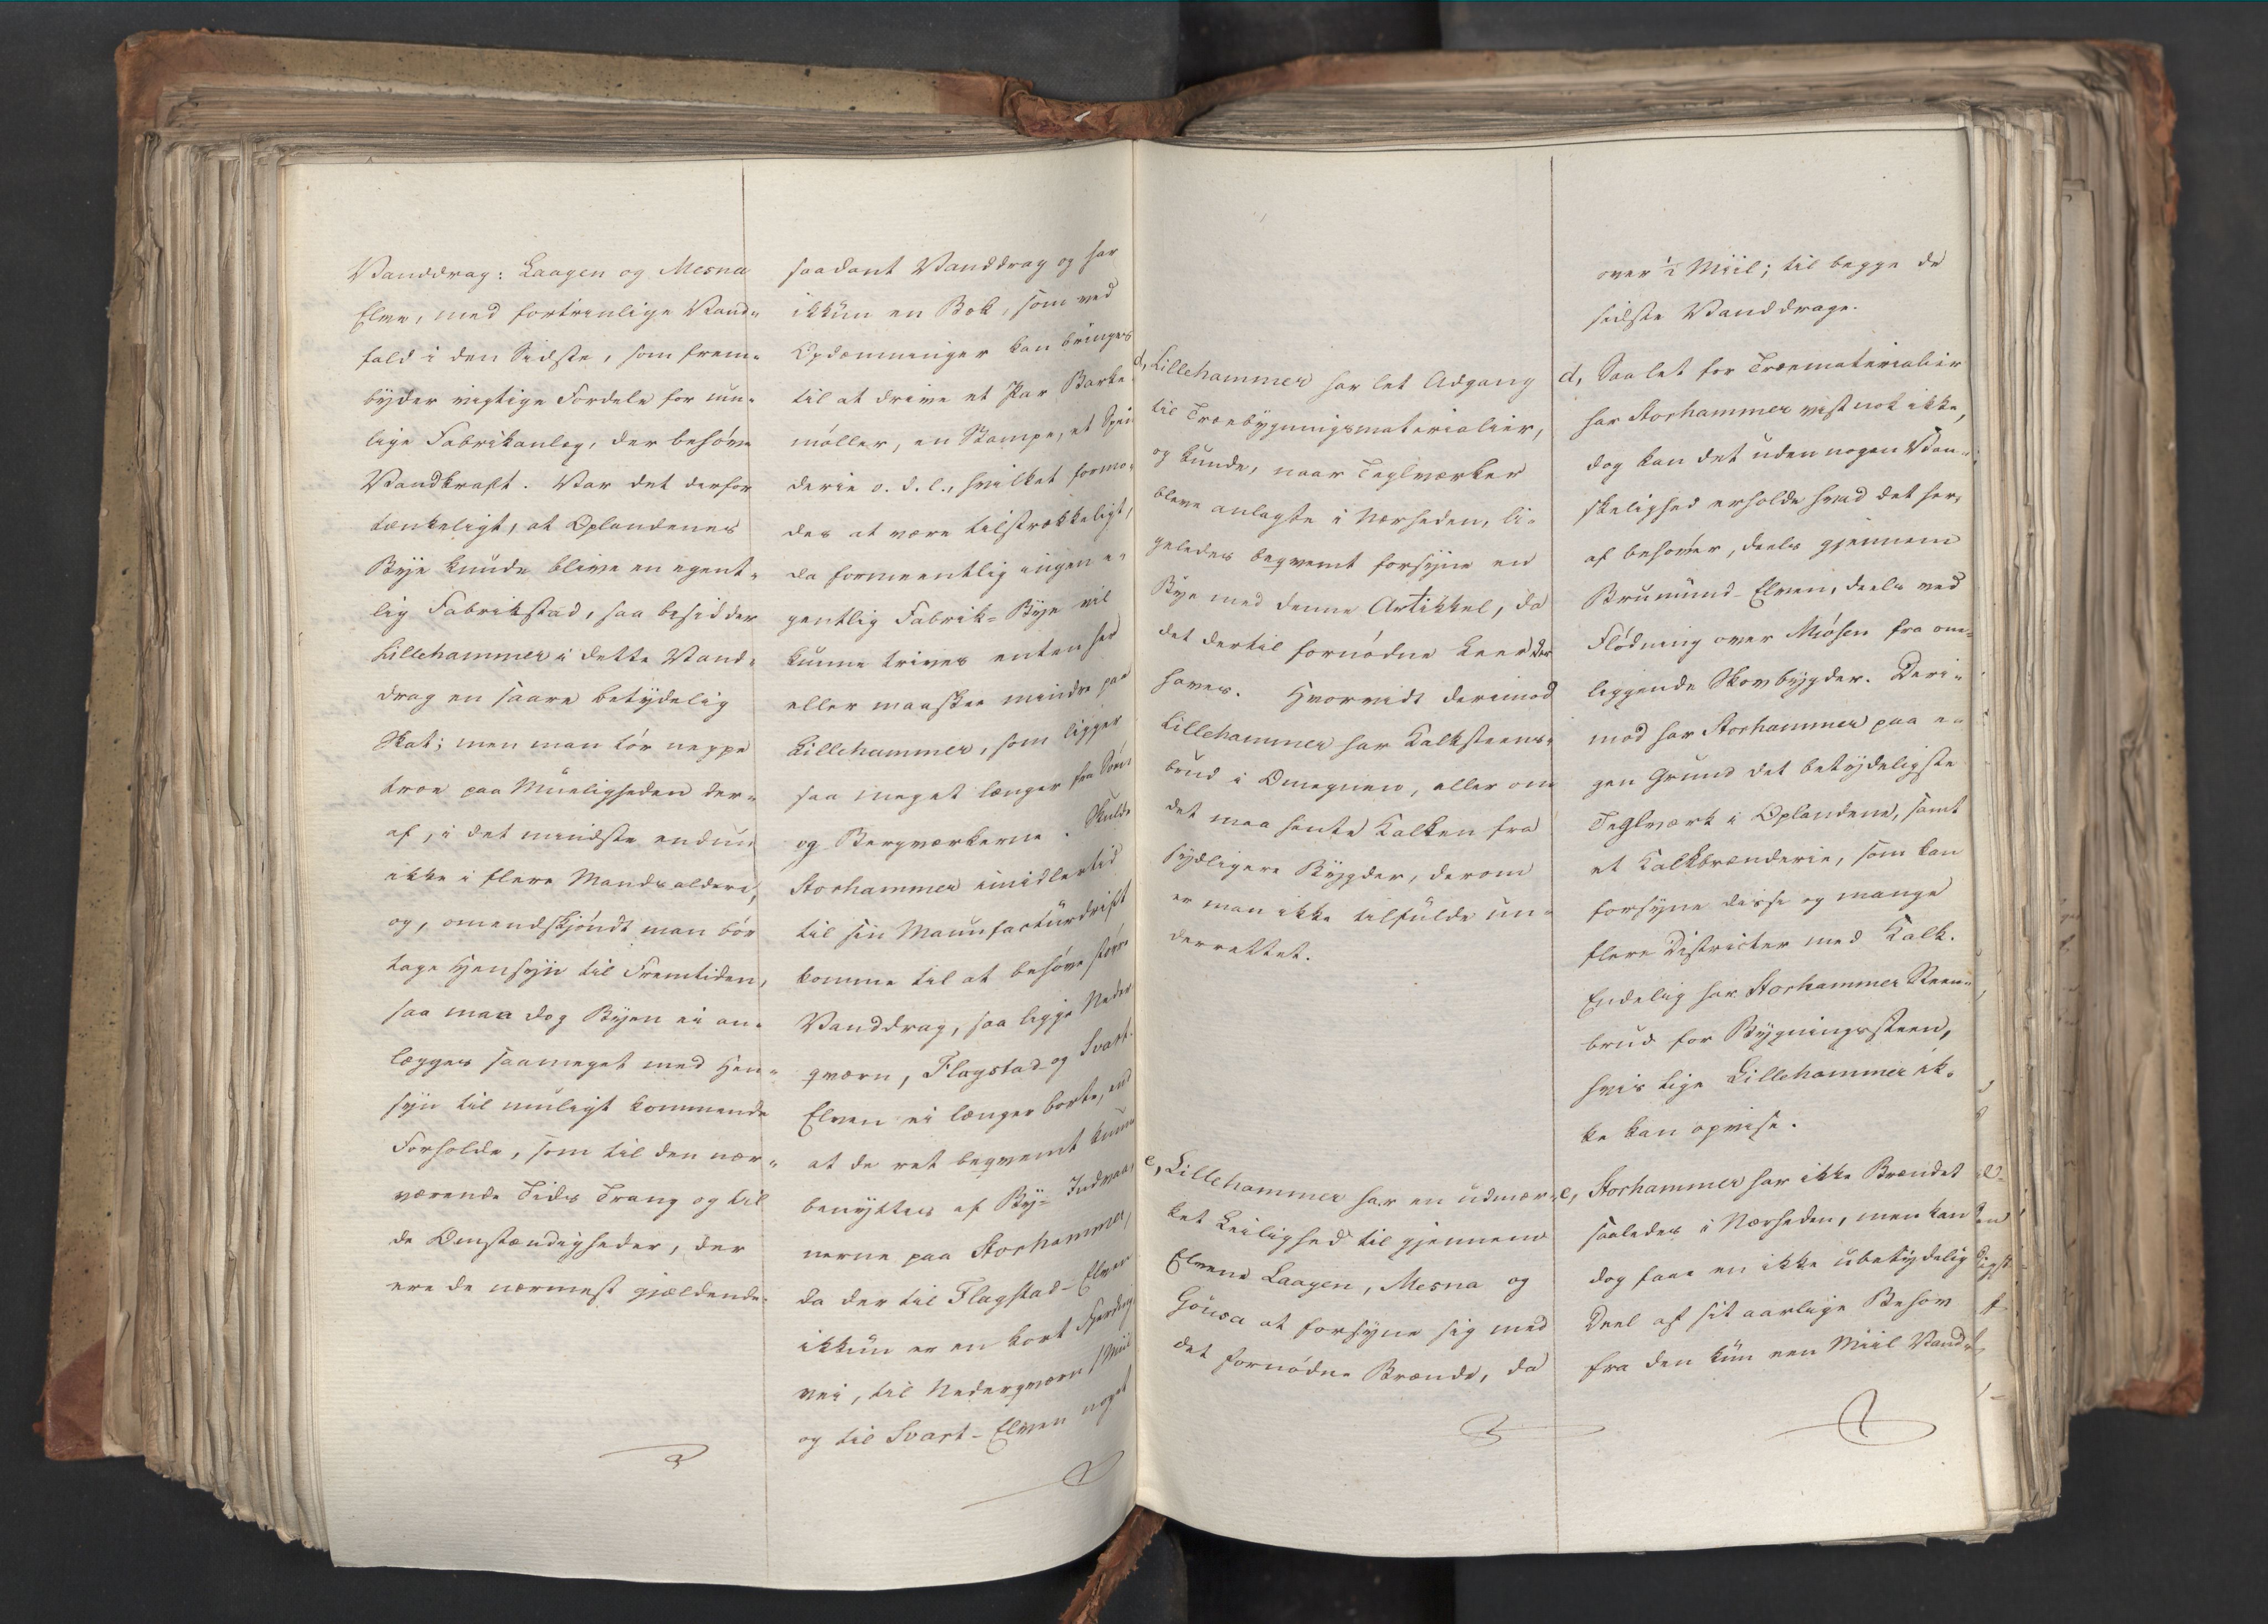 Vanddrag: Laagen og Mesna
Elve, med fortrinlige Vand-
fald i den Sidste, som frem-
byder vigtige Fordele for mu-
lige Fabrikanlæg, der behøve
Vandkraft. Var det derfor
tænkeligt, at Oplandenes
Bye kunde blive en egent-
lig Fabrikstad, saa besidder
Lillehammer i dette Vand-
drag en saare betydelig
Skat; men man tør neppe
troe paa Mueligheden der-
af, i det mindste endnu
ikke i flere Mandsaldere,
og, omendskjøndt man bør
tage Hensyn til Fremtiden,
saa maa dog Byen ei an-
lægges saameget med Hen-
syn til muligt kommende
Forholde, som til den nær-
værende Tids Trang og til
de Omstændigheder, der
ere de nærmest gjældende.
saadant Vanddrag og har
ikkun en Bæk, som ved
Opdæmninger kan bringes
til at drive et Par Barke-
møller, en Stampe, et Spin-
derie o. d. l., hvilket formo-
des at være tilstrækkeligt,
da formeentlig ingen e-
gentlig Fabrik-Bye vil
kunne trives enten her
eller maaskee mindre paa
Lillehammer, som ligger
saa meget længer fra Søen
og Bergværkerne. Skulde
Storhammer imidlertid
til sin Manufacturdrift
komme til at behøve større
Vanddrag, saa ligge Neder-
qværn, Flagstad- og Svart-
Elven ei længer borte, end
at de ret beqvemt kunne
benyttes af By-Indvaa-
nerne paa Storhammer,
da der til Flagstad-Elven
ikkun er en kort Fjerding
vei, til Nederqværn 1 Miil
og til Svart-Elven noget
d, Lillehammer har let Adgang
til Træebygningsmaterialier,
og kunde, naar Teglværker
bleve anlagte i Nærheden, li-
geledes beqvemt forsyne en
Bye med denne Artikkel, da
det dertil fornødne Leer der
haves. Hvorvidt derimod
Lillehammer har Kalksteens-
brud i Omegnen, eller om
det maa hente Kalken fra
sydligere Bygder, derom
er man ikke tilfulde un-
derrettet.
e, Lillehammer har en udmær-
ket Leilighed til gjennem
Elvene Laagen, Mesna og
Gousa at forsyne sig med
det fornødne Brænde, da
over ½ Miil; til begge de
sidste Vanddrage.
d, Saa let for Træematerialier
har Storhammer vist nok ikke,
dog kan det uden nogen Van-
skelighed erholde hvad det her-
af behøver, deels gjennem
Brumund-Elven, deels ved
Flødning over Miøsen fra om-
liggende Skovbygder. Deri-
mod har Storhammer paa e-
gen Grund det betydeligste
Teglværk i Oplandene, samt
et Kalkbrænderie, som kan
forsyne disse og mange
flere Districter med Kalk.
Endelig har Storhammer Steen-
brud for Bygningssteen,
hvis lige Lillehammer ik-
ke kan opvise.
e, Storhammer har ikke Brændet
saaledes i Nærheden, men kan
dog faae en ikke ubetydelig
Deel af sit aarlige Behov
fra den kun een Miil Vand-